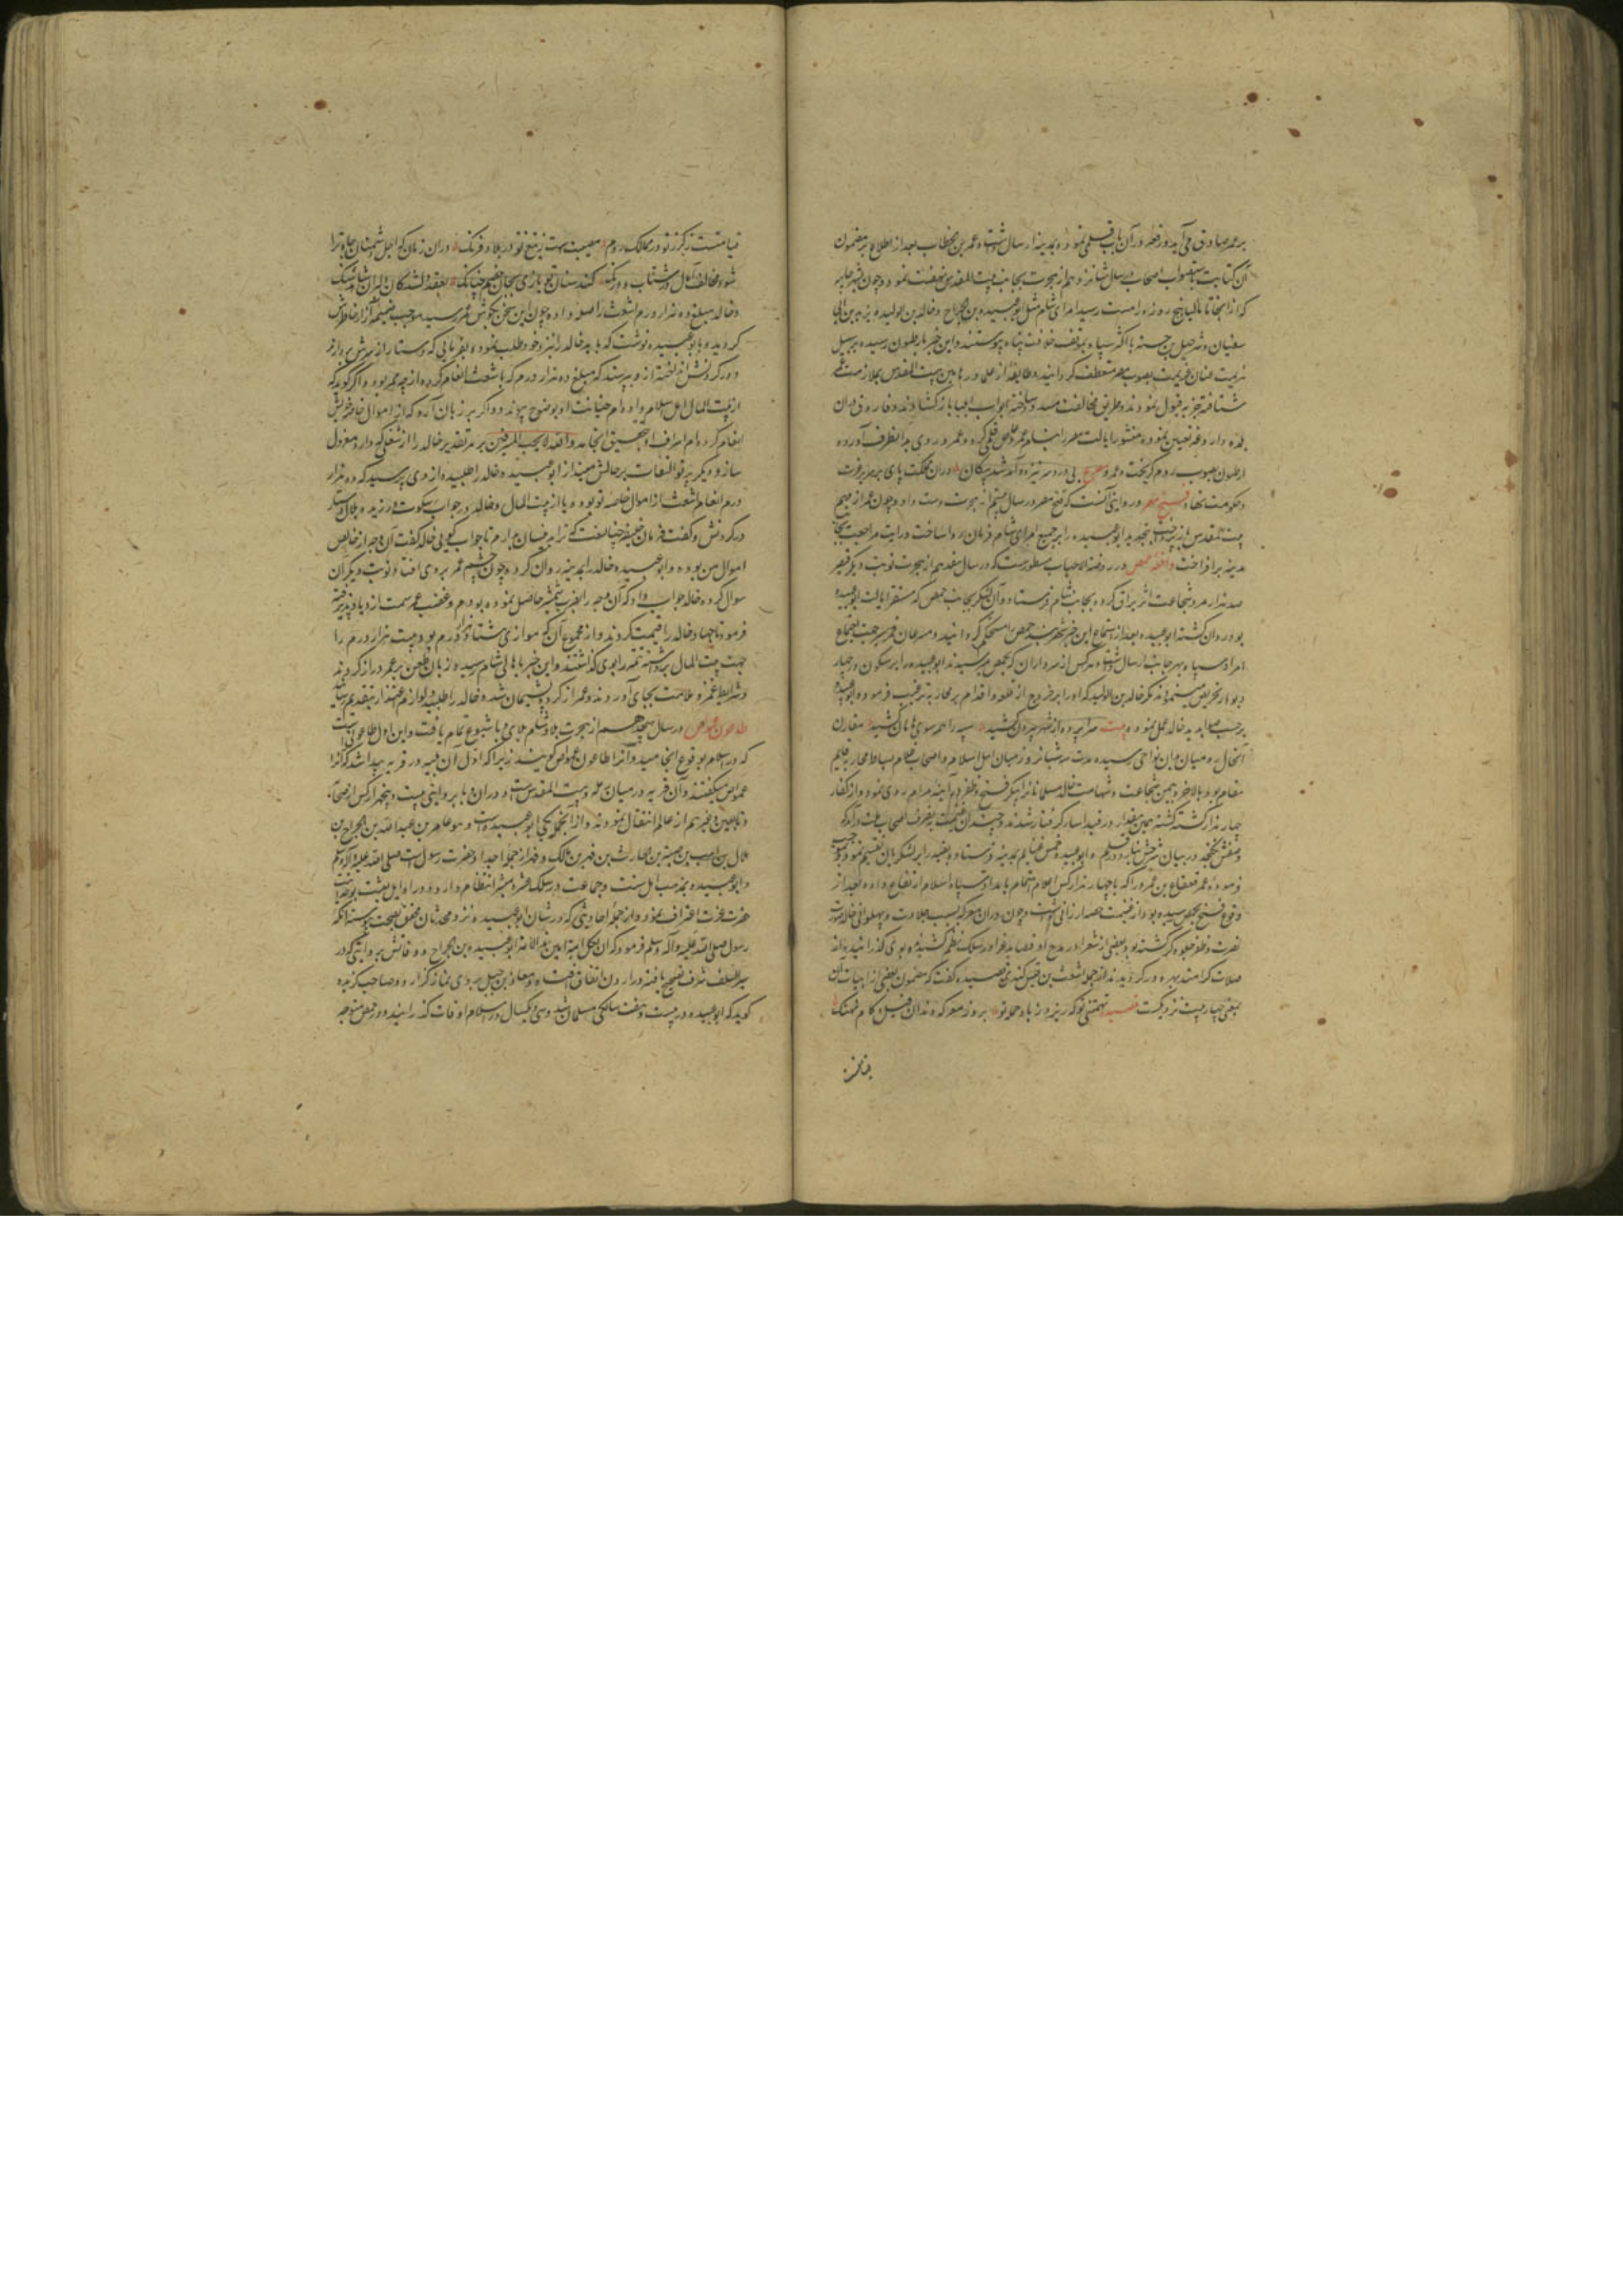 بر عمر صادق می آید و رقعه در آن باب قلمی نموده بمدینه ارسال داشت و عمر بن خطاب بعد از اطلاع بر مضمون
آن کتابت باستصواب اصحاب در سال شانزدهم از هجرت بجانب بیت المقدس نهضت نمود و چون بشهر جابیه
که از آنجا تا ایلیا پنج روزه راهست رسید امرای شام مثل ابوعبیده بن الجراح و خالد بن الولید و یزید بن ابی
سفیان و شرحبیل بن حسنه با اکثر سپاه بموقف خلافت پناه پیوستند و این خبر بارطبون رسیده بر سبیل
هزیمت عنان عزیمت بصوب مصر منعطف گردانید و طایفه از علما و رهابین بیت المقدس بملازمت عمر
شتافته جزیه قبول نمودند و طریق مخالفت مسدود ساخته ابواب ایلیا باز گشادند و فاروق در آن
بلده داروغه تعیین نموده منشور ایالت مصر را بنام عمرو عاص قلمی کرد و عمرو روی بدانطرف آورده
ارطبون بصوب روم گریخت و عمرو مصرع بی دردسر نیزه و آمد شد پیکان در آن مملکت پای بر سریر عزت
و حکومت نهاد فتح مصر و روایتی آنست که فتح مصر در سال بیستم از هجرت دست داد و چون عمر از مهم
بیت المقدس باز پرداخت بتجدید ابوعبیده را بر جمیع امرای شام فرمان روا ساخت و رایت مراجعت بجانب
مدینه برافراخت واقعه حمص در روضة الاحباب مسطورست که در سال هفدهم از هجرت نوبت دیگر قیصر
صد هزار مرد شجاعت اثر یراق کرده بجانب شام فرستاد و آن لشکر بجانب حمص که مستقر ایالت ابوعبیده
بود روان گشته ابوعبیده بعد از استماع این خبر شهربند حمص را مستحکم گردانید و مسرعان قمرسیر جهت اجتماع
امرا و سپاه بهر جانب ارسال داشت و هر کس از سرداران که بحمص میرسیدند ابوعبیده را بر سکون در چهار
دیوار تحریض مینمودند مگر خالد بن الولید که او را بر خروج از قلعه و اقدام بر محاربه ترغیب فرمود و ابوعبیده
بر حسب صوابدید خالد عمل نموده بیت سراپرده از شهر بیرون کشید سپه را همه سوی هامون کشید مقارن
آنحال رومیان بدان نواحی رسیده مدت سه شبانروز میان اهل اسلام و اصحاب ظلام بساط محاربه قایم
مقام بود و بالاخره بیمن شجاعت و شهامت خالد مسلمانانرا پیکر فتح و ظفر در آینه مرام روی نمود و از کفار
چهار هزار کس گشته گشته بهمین مقدار در قید اسار گرفتار شدند و چندان غنیمت بتصرف اصحاب ملت درآمد که
وصفش نگنجد در بیان شرحش نیاید در قلم و ابوعبیده خمس غنایم بمدینه فرستاد و بقیه را بر لشکریان تقسیم نمود و حسب
فرموده عمر قعقاع بن عمرو را که با چهار هزار کس از اعلام شجاعت بامداد سپاه اسلام ارتفاع داده بعد از
وقوع فتح بحمص رسیده بود از غنیمت حصه ارزانی داشت و چون در آن معرکه بسبب جلادت و پهلوانی خالد صورت
نصرت و ظفر جلوه گر گشته بود بعضی از شعرا در مدح او قصاید غرا در سلک نظم کشیده بروی گذرانیدند و از
صلات گرامند بهره ور گردیدند از جمله اشعث بن قیس کندی قصیده گفت که مضمون بعضی از ابیات آن
بمعنی چهار بیت نزدیکست قصیده تهمتنی تو که ریزد ز باد حمله تو بروز معرکه دندان فیل و کام نهنگ
قیامتست ز گرز تو در ممالک روم مصیبت است ز تیغ تو در بلاد فرنگ در آن زمان که اجل دشمنان جاه ترا
شود مخالف آمال در شتاب و درنگ کند سنان تو بازی بجان خصم چنانک بعقد لشکان دلبران شاهد شنگ
و خالد مبلغ ده هزار درم اشعث را صله داده چون این سخن بگوش عمر رسید موجب ضمیمه آزار خاطرش
گردید و بابوعبیده نوشت که باید خالد را نزد خود طلب نموده بفرمایی که دستار از سرش بردارند
و در گردنش انداخته ازو بپرسند که مبلغ ده هزار درم که باشعث انعام کرده از چه ممر بود و اگر گوید که
از بیت المال اهل اسلام داده ام خیانت او بوضوح پیوندد و اگر بر زبان آرد که از اموال خاصه خویش
انعام کرده ام اسراف او بتحقیق انجامد و الله لا یحب المسرفین بهر تقدیر خالد را از شغلی که دارد معزول
سازد و دیگر پرتو التفات بر حالش میندازد ابوعبیده خالد را طلبید و از وی پرسید که ده هزار
درم انعام اشعث از اموال خاصه تو بود و یا از بیت المال و خالد در جواب سکوت ورزیده بلال دستار
در گردنش و گفت فرمان خلیفه چنانست که ترا برینسان بدارم تا جواب گویی خالد گفت آن وجه از خالص
اموال من بوده و ابوعبیده خالد را بمدینه روان کرده چون چشم عمر بروی افتاد نوبت دیگر آن
سوال کرده خالد جواب داد که آن وجه را بضرب شمشیر حاصل نموده بودم و غضب عمر سمت ازدیاد پذیرفته
فرمود تا جهات خالد را قیمت کردند و از مجموع آن که موازی هشتاد هزار درم بود بیست هزار درم را
جهت بیت المال برداشته تتمه را بوی گذاشتند و این خبر باهالی شام رسیده زبان طعن بر عمر دراز کردند
و شرایط غمز و ملامت بجای آوردند و عمر از کرده پشیمان شد و خالد را طلبیده لوازم اعتذار بتقدیم رسانید
طاعون عمواس در سال هجدهم از هجرت بلاد شام بلای وبا شیوع تمام یافت و این اول طاعونی است
که در اسلام بوقوع انجامید و آنرا طاعون عمواس گویند زیرا که اول آن بلیه در قریه پیدا شد که آنرا
عمواس میگفتند و آن قریه در میان رمله و بیت المقدس است و در آن وبا بروایتی بیست و پنج هزار کس از صحابه
و تابعین و غیرهم از عالم انتقال نمودند و از آنجمله یکی ابوعبیده است و هو عامر بن عبدالله بن الجراح بن
هلال بن اهیب بن ضبة بن الحارث بن فهر بن مالک و فهر از جمله اجداد حضرت رسول است صلی الله علیه و آله و سلم
و ابوعبیده بمذهب اهل سنت و جماعت در سلک عشره مبشره انتظام دارد و در اوایل بعثت بنبوت
حضرت عزت اعتراف نمود و از جمله احادیثی که در شان ابوعبیده نزد محدثان محقق بصحت پیوسته آنکه
رسول صلی الله علیه و آله و سلم فرمود که ان لکل امة امین و امین هذه الامة ابوعبیدة بن الجراح و وفاتش بروایتی که در
سیر السلف شرف تصحیح یافته در اردن اتفاق افتاد و معاذ بن جبل بروی نماز گزارد و صاحب گزیده
گوید که ابوعبیده در بیست و هفت سالگی مسلمان شد و سی و یکسال در اسلام اوقات گذرانید و در حمص متوجه